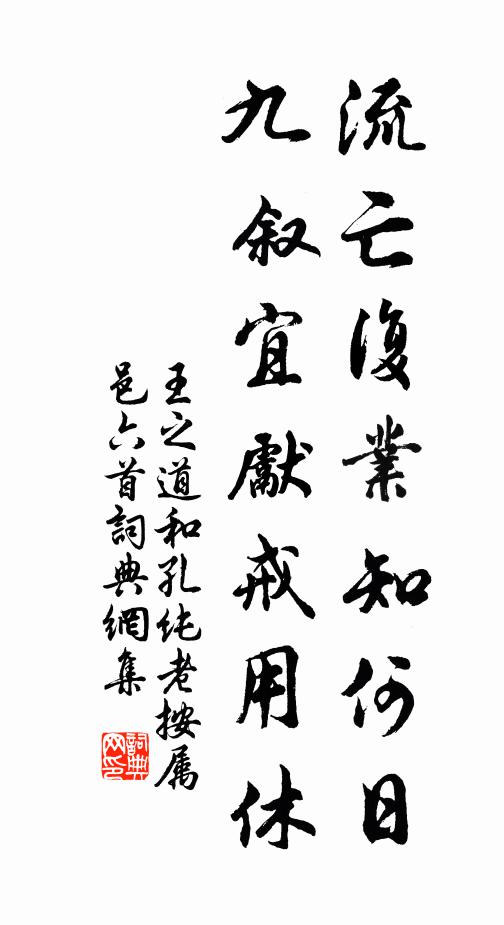 流亡復業知何日
九叙宜獻戒用休
王之道和孔純老按属
邑六首詞典網集
詞典
网印